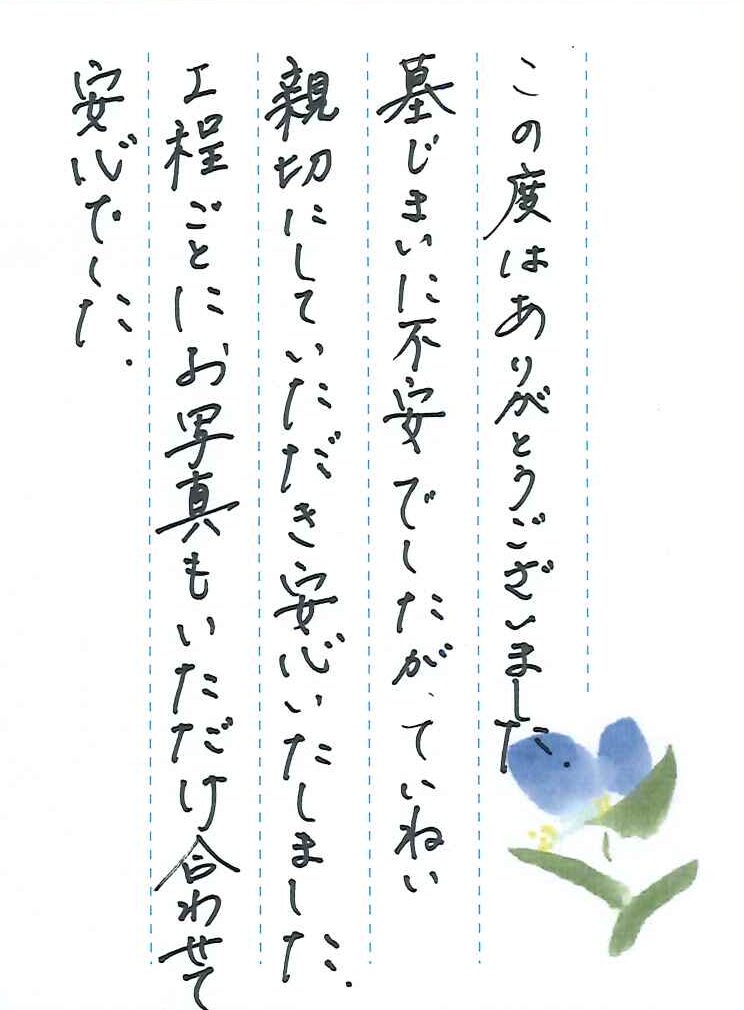 この度はありがとうございました.
墓じまいに不安でしたが、ていねい
親切にしていただき安心いたしました.
工程ごとにお写真もいただけ合わせて
安心でした.